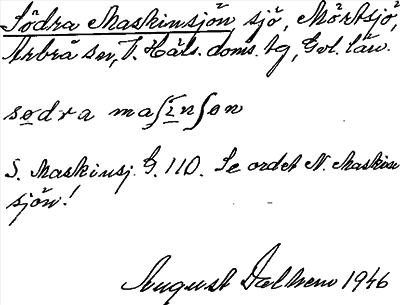 Södra Maskinsjön, sjö, Mörtsjö,
Arbrå sn, V. Häls. doms. tg, Gvl. län.
sødra maʃinʃøn
S. Maskinsj. G. 110. Se ordet N. Maskin
sjön!
August Dalhem 1946